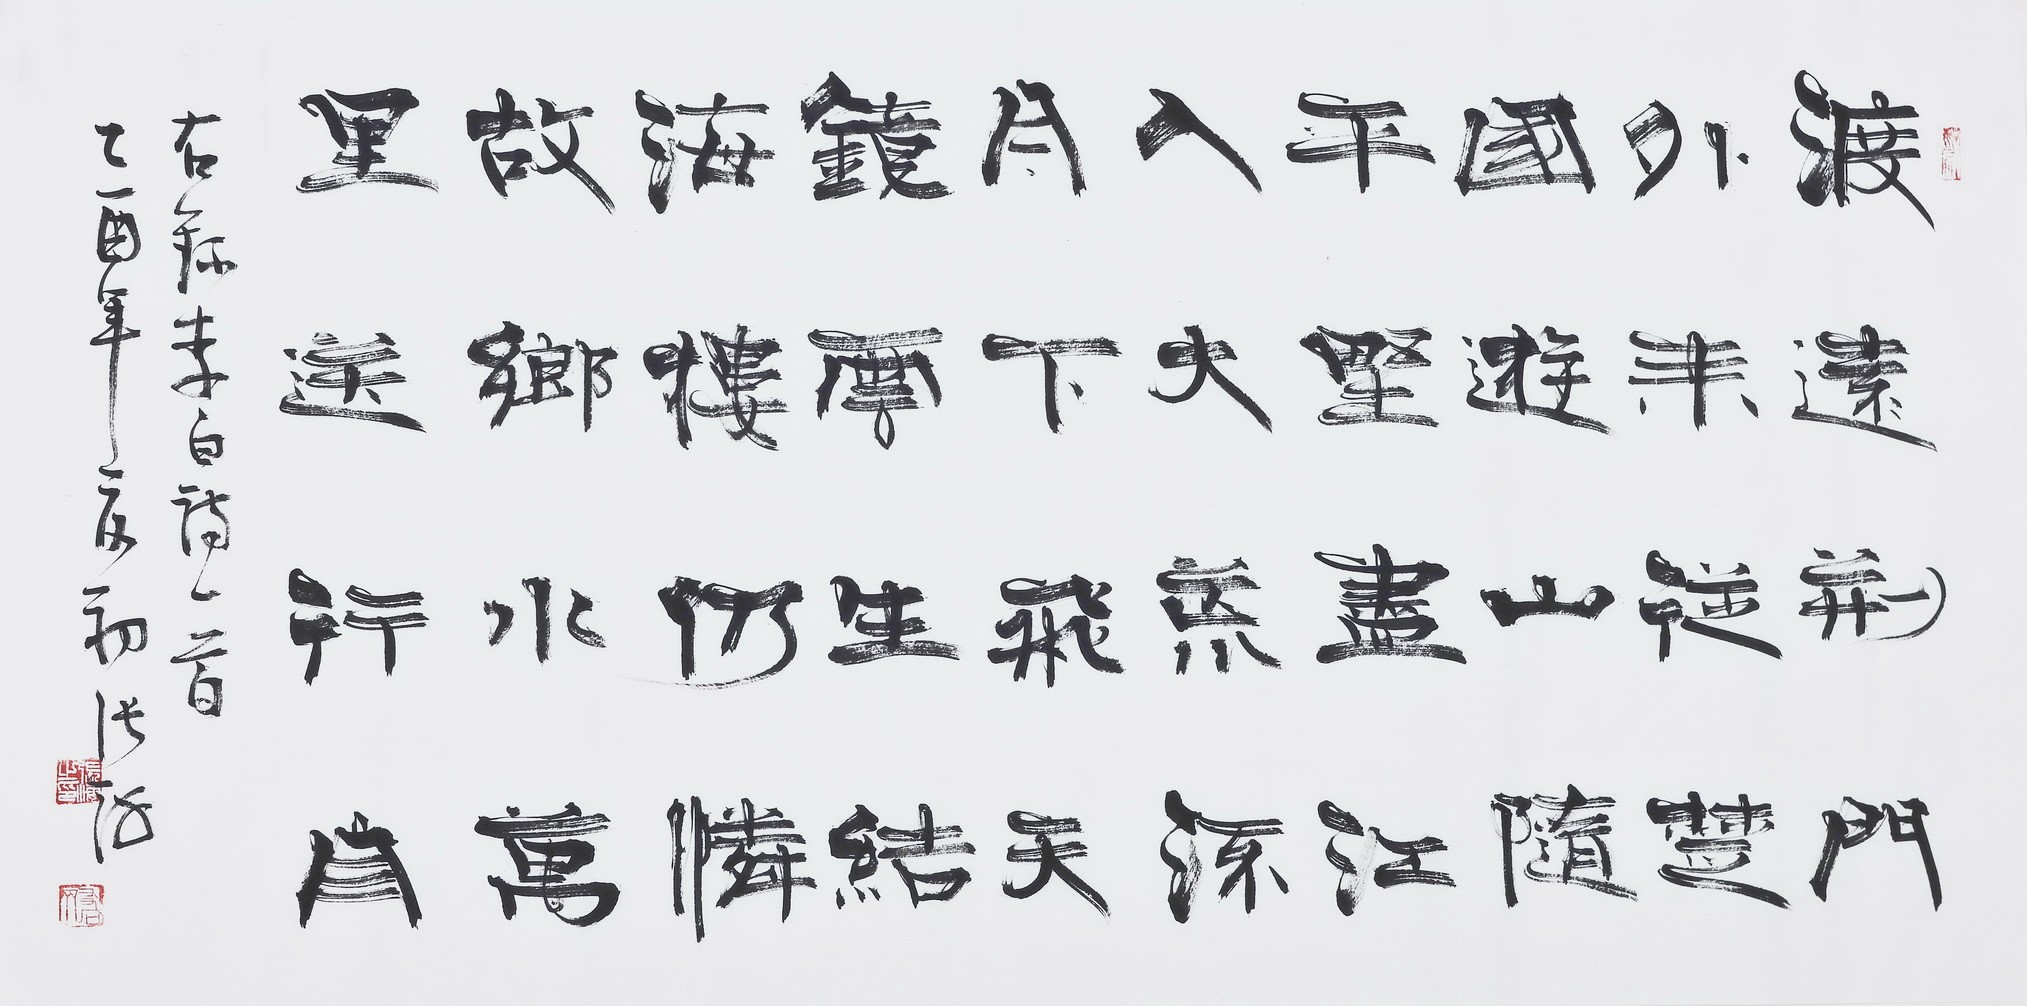 渡遠荊門
外來從楚
國遊山隨
平野盡江
入大荒流
月下飛天
鏡雲生結
海樓仍憐
故鄉水萬
里送行舟
右錄李白詩一首
乙酉年夏初張海